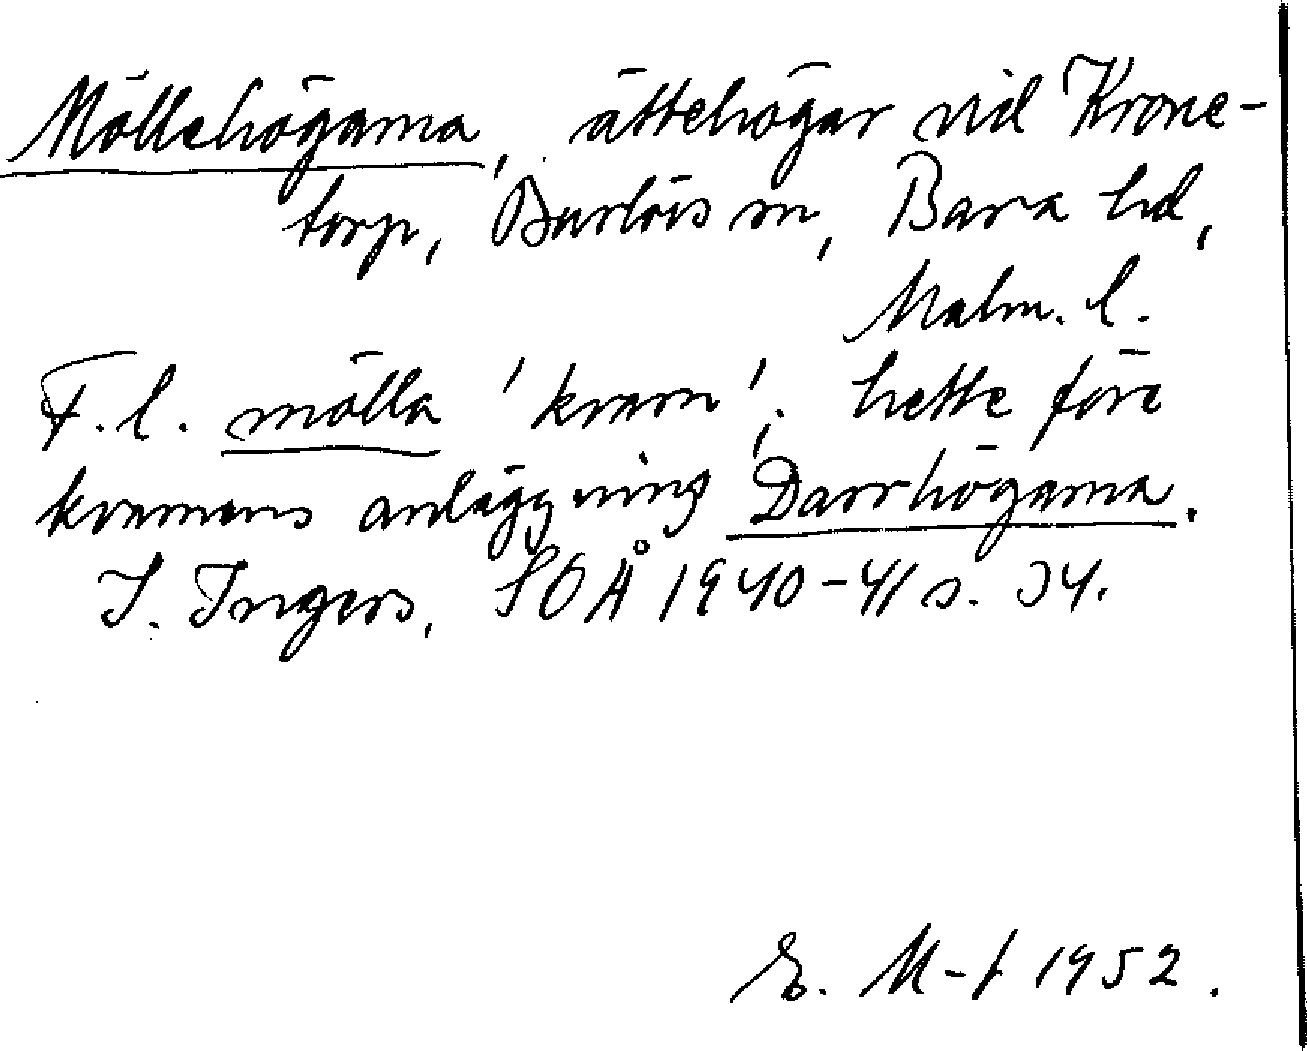 Möllehögarna, ättehögar vid Krone-
torp, Burlövs sn, Bara hd,
Malm. l.
F. l. mölla 'kvarn'; hette före
kvarnens anläggning Darrhögarna.
I. Ingers, SOÅ 1940-41 s. 34.
E. M-t 1952.